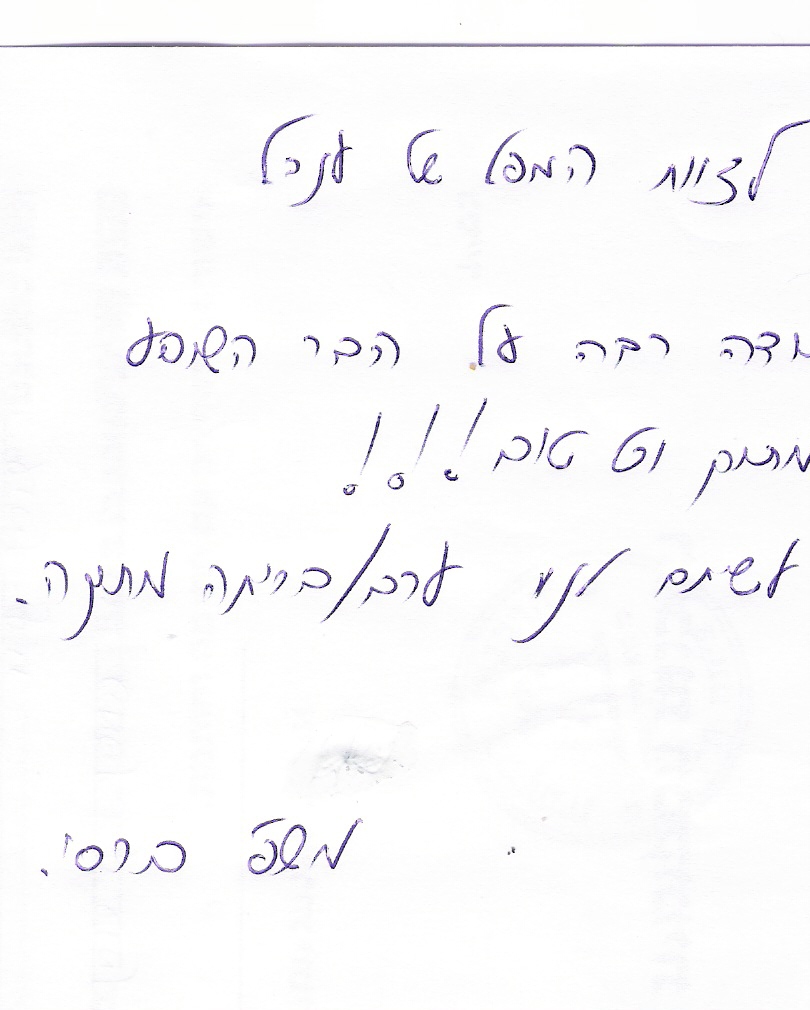 לצוות המפל של ענבל
תודה רבה על הבר השופע
מתוק טוב!!!
עשיתם לנו ערב/בריתה מתוקה.
משפ' ברסי.